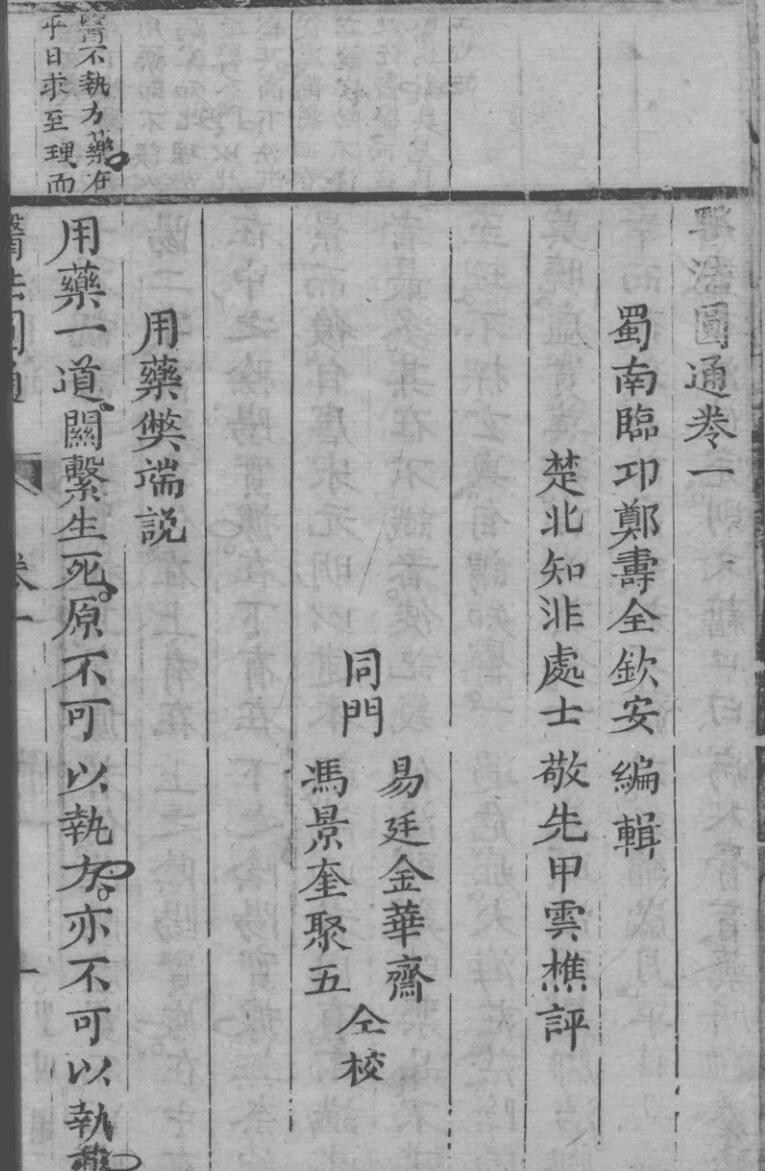 醫法圓通卷一
蜀南臨邛鄭壽全欽安編輯
楚北知非處士敬先甲雲樵評
同門
易廷金華齋
馮景奎聚五
仝校
用藥弊端説
用藥一道關繫生死原不可以執方亦不可以執藥
醫不執方藥在
平日求至理而
醫法圓通
卷一
一